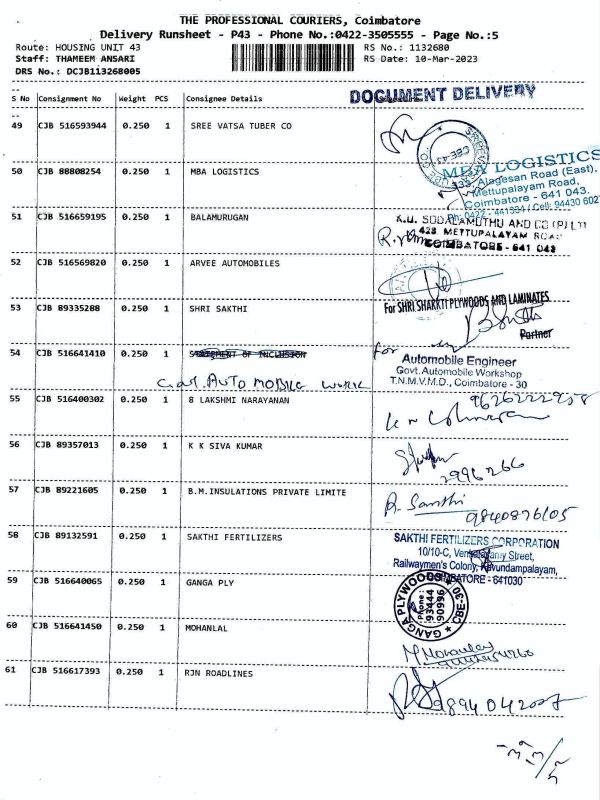 THE PROFESSIONAL COURIERS, Coimbatore
Delivery Runsheet - P43 - Phone No.:0422-3505555 - Page No.:5
Route: HOUSING UNIT 43 RS No.: 1132680
Staff: THAMEEM ANSARI RS Date: 10-Mar-2023
DRS No.: DCJB113268005
S No Consignment No Weight PCS Consignee Details
DOCUMENT DELIVERY
49 CJB 516593944 0.250 1 SREE VATSA TUBER CO
CBE-43
50 CJB 88808254 0.250 1 MBA LOGISTICS
MBA LOGISTICS
133, Alagesan Road (East),
Mettupalayam Road,
Coimbatore - 641 043.
51 CJB 516659195 0.250 1 BALAMURUGAN
K.U. SODALAMUTHU AND CO (P) LTD
428 METTUPALAYAM ROAD
COIMBATORE - 641 043
52 CJB 516569820 0.250 1 ARVEE AUTOMOBILES
53 CJB 89335288 0.250 1 SHRI SAKTHI
For SHRI SHAKKTI PLYWOODS AND LAMINATES
Partner
54 CJB 516641410 0.250 1 STATEMENT OF INCLUSION
Govt. AUTO MOBILE WORK
for
Automobile Engineer
Govt.Automobile Workshop
T.N.M.V.M.D., Coimbatore - 30
55 CJB 516400302 0.250 1 8 LAKSHMI NARAYANAN
56 CJB 89357013 0.250 1 K K SIVA KUMAR
2996266
57 CJB 89221605 0.250 1 B.M.INSULATIONS PRIVATE LIMITE
R. Santhi
9840876105
58 CJB 89132591 0.250 1 SAKTHI FERTILIZERS
SAKTHI FERTILIZERS CORPORATION
10/10-C, Street,
Railwaymen's Colony, Kavundampalayam,
COIMBATORE - 641030
59 CJB 516640065 0.250 1 GANGA PLY
GANGA PLYWOODS CBE-30
Phone:
93444
90996
60 CJB 516641450 0.250 1 MOHANLAL
61 CJB 516617393 0.250 1 RJN ROADLINES
9894042007